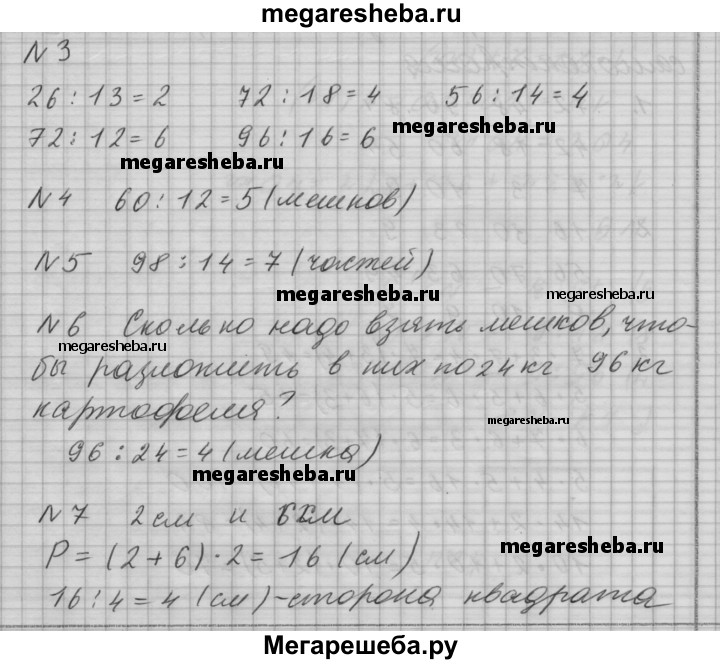 megaresheba.ru
N 3
26 : 13 = 2 72 : 18 = 4 56 : 14 = 4
megaresheba.ru
72 : 12 = 6 96 : 16 = 6
megaresheba.ru
N 4 60 : 12 = 5 (мешков)
N 5 98 : 14 = 7 (частей)
megaresheba.ru megaresheba.ru
N 6 Сколько надо взять мешков, что-
megaresheba.ru
бы разложить в них по 24 кг 96 кг
картофеля? megaresheba.ru
96 : 24 = 4 (мешка)
megaresheba.ru
N 7 2 см и 6 см
P = (2 + 6) · 2 = 16 (см) megaresheba.ru
16 : 4 = 4 (см) - сторона квадрата
Мегарешеба.ру